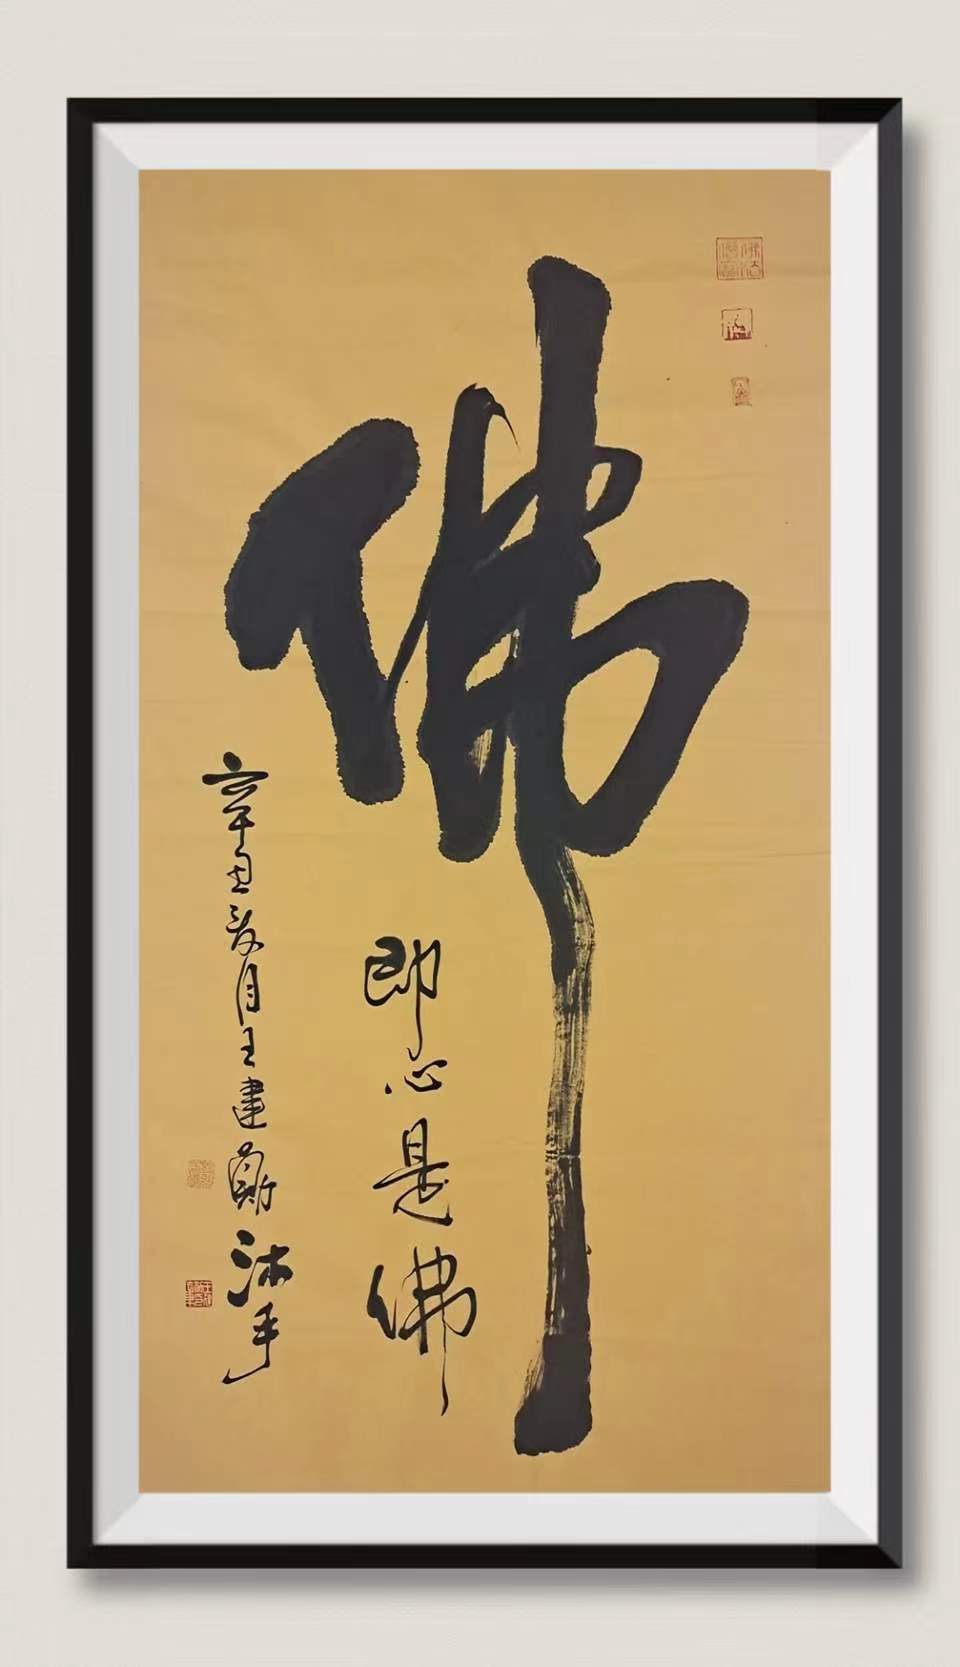 佛
即心是佛
辛丑月王建沐手